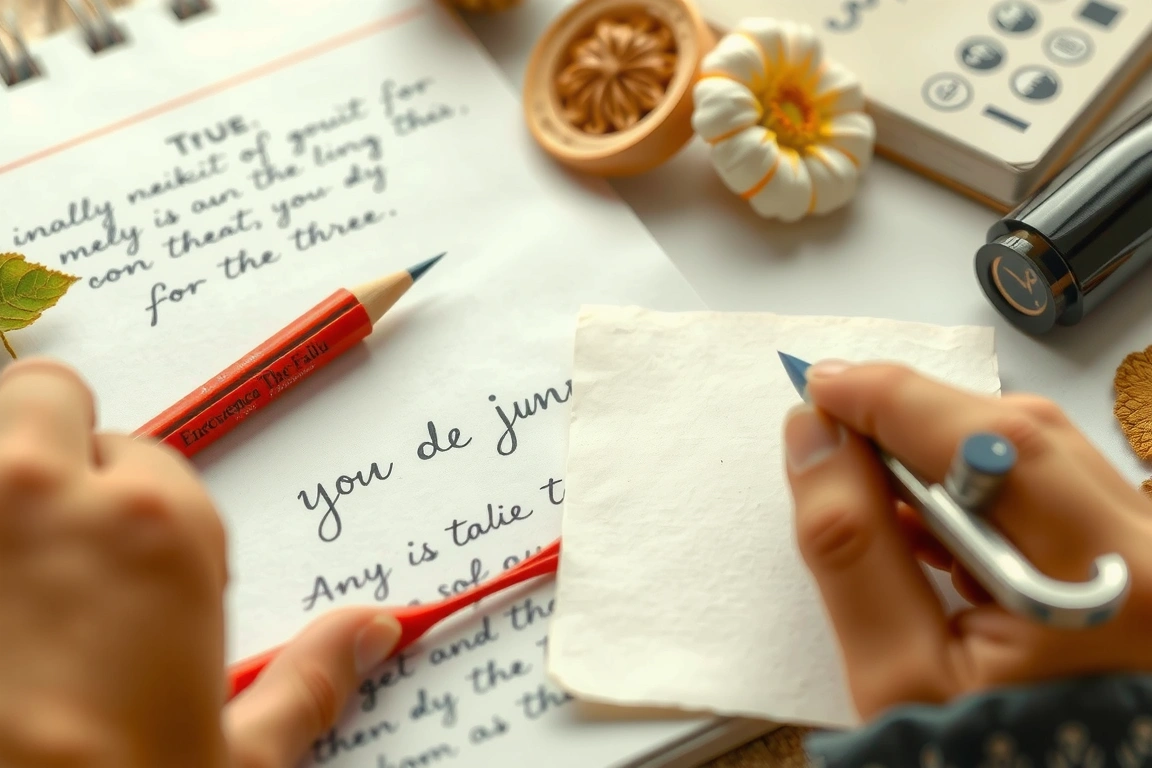 TRUE.
inally neikit of gouit for
mely is aun the ling this,
con theat, you dy
for the three.
The
you de
Any is talie
sof
get and the
then dy the
as the